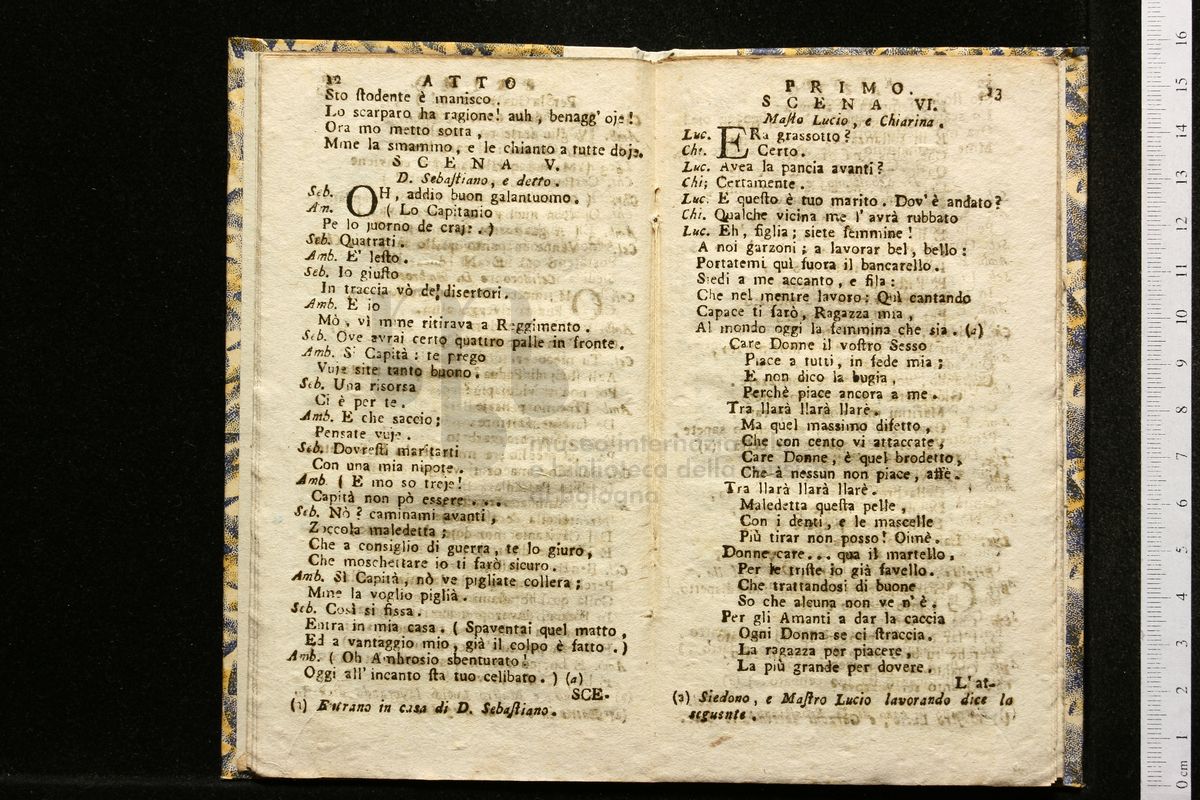 12 ATTO
Sto ſtodente è manisco.
Lo scarparo ha ragione! auh, benagg' oje!
Ora mo metto sotta,
Mme la smammo, e le chianto a tutte doje.
SCENA V.
D. Sebaſtiano, e detto.
Seb. OH, addio buon galantuomo.
Am. ( Lo Capitanio
Pe lo juorno de craje. )
Seb. Quatrati.
Amb. E' leſto.
Seb. Io giuſto
In traccia vò de' disertori.
Amb. E io
Mò, vì mme ritirava a Reggimento.
Seb. Ove avrai certo quattro palle in fronte.
Amb. Sì Capità: te prego
Vuje site tanto buono.
Seb. Una risorsa
Ci è per te.
Amb. E che saccio;
Pensate vuje.
Seb. Dovreſti maritarti
Con una mia nipote.
Amb. ( E mo so treje!
Capità non pò essere....
Seb. Nò? caminami avanti,
Zoccola maledetta;
Che a consiglio di guerra, te lo giuro,
Che moschettare io ti farò sicuro.
Amb. Sì Capità, nò ve pigliate collera;
Mme la voglio piglià.
Seb. Così si fissa.
Entra in mia casa. ( Spaventai quel matto,
Ed a vantaggio mio, già il colpo è fatto. )
Amb. ( Oh Ambrosio sbenturato.
Oggi all' incanto ſta tuo celibato. ) (a)
SCE-
(a) Entrano in casa di D. Sebaſtiano.
PRIMO. 13
SCENA VI.
Maſto Lucio, e Chiarina.
Luc. ERa grassotto?
Chi. Certo.
Luc. Avea la pancia avanti?
Chi; Certamente.
Luc. E queſto è tuo marito. Dov' è andato?
Chi. Qualche vicina me l' avrà rubbato
Luc. Eh, figlia; siete femmine!
A noi garzoni; a lavorar bel, bello:
Portatemi quì fuora il bancarello.
Siedi a me accanto, e fila:
Che nel mentre lavoro: Quì cantando
Capace ti farò, Ragazza mia,
Al mondo oggi la femmina che sia. (a)
Care Donne il voſtro Sesso
Piace a tutti, in fede mia;
E non dico la bugia,
Perchè piace ancora a me.
Tra llarà llarà llarè.
Ma quel massimo difetto,
Che con cento vi attaccate,
Care Donne, è quel brodetto,
Che à nessun non piace, affè.
Tra llarà llarà llarè.
Maledetta queſta pelle,
Con i denti, e le mascelle
Più tirar non posso! Oimè.
Donne care... qua il martello,
Per le triſte io già favello.
Che trattandosi di buone
So che alcuna non ve n' è.
Per gli Amanti a dar la caccia
Ogni Donna se ci ſtraccia.
La ragazza per piacere,
La più grande per dovere.
L' at-
(a) Siedono, e Maſtro Lucio lavorando dice la
seguente.
museo internazionale
e biblioteca della
di bologna
16
15
14
13
12
11
10
9
8
7
6
5
4
3
2
1
0 cm